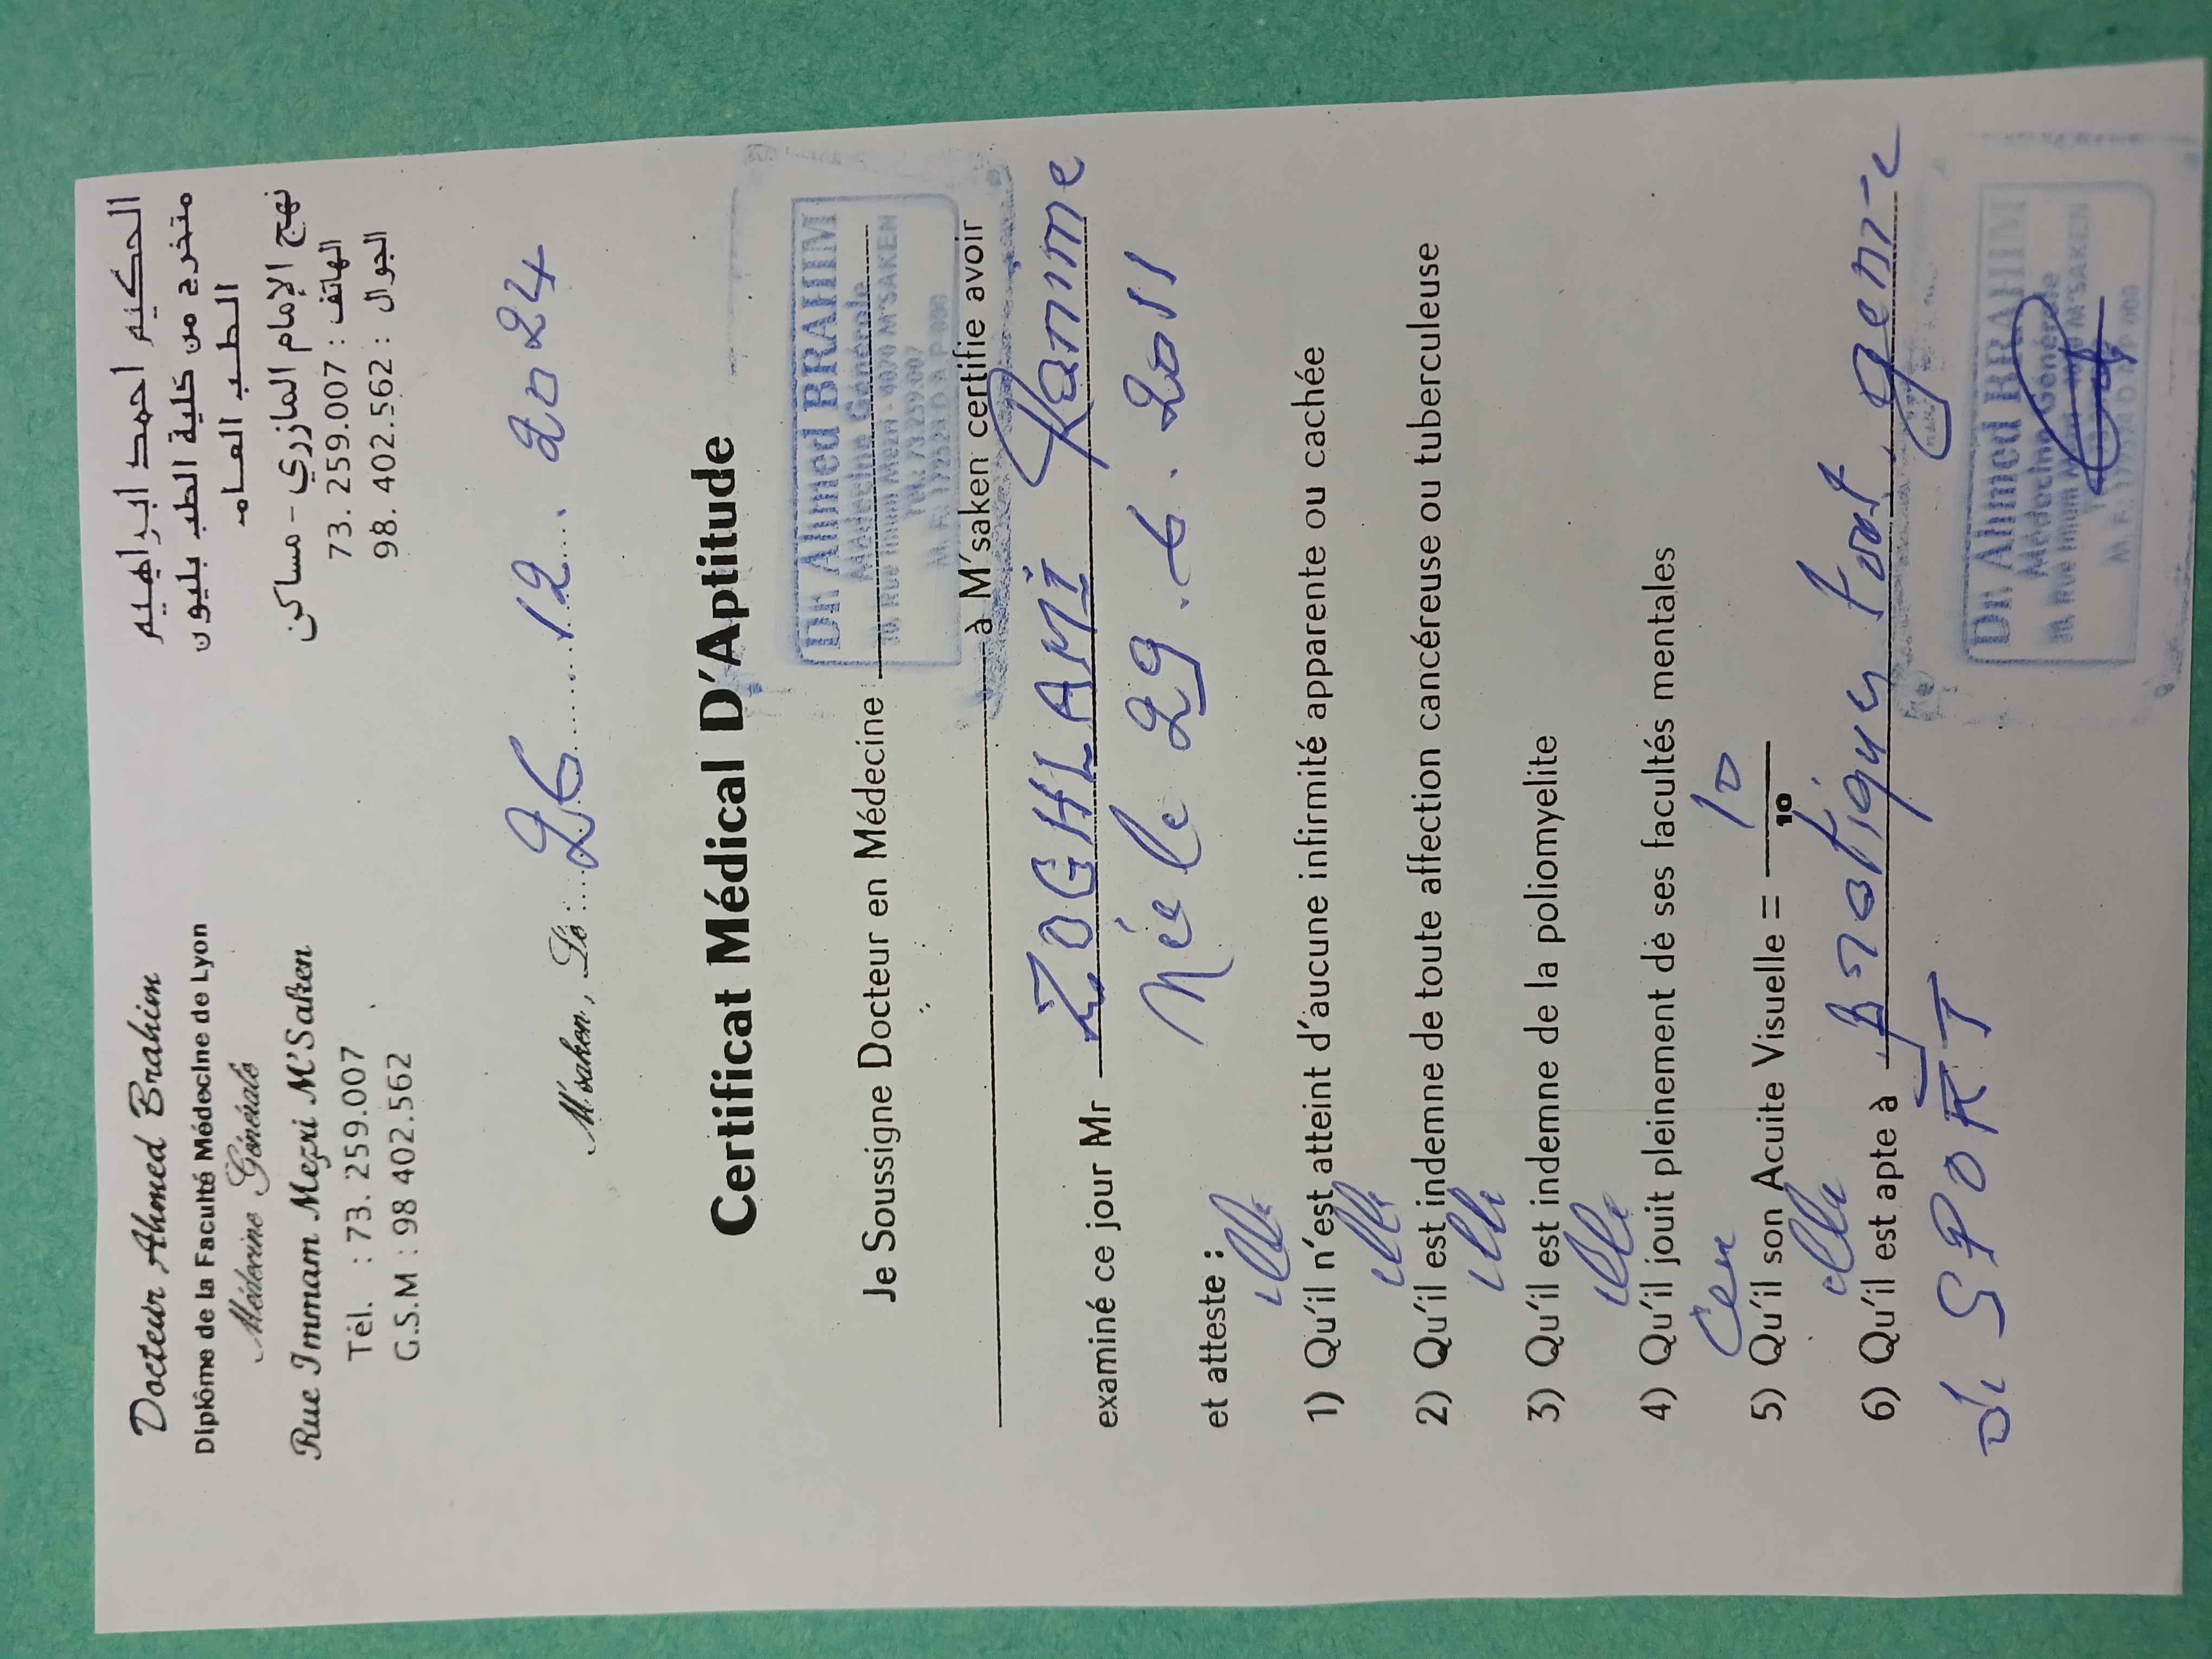 Docteur Ahmed Brahim
Diplôme de la Faculté Médecine de Lyon
Médecine Générale
Rue Immam Mezri M'Saken
Tél. : 73. 259.007
G.S.M : 98 402.562
الحكيم احمد ابراهيم
متخرج من كلية الطب بليون
الطب العام
نهج الإمام المازري - مساكن
الهاتف : 73. 259.007
الجوال : 98. 402.562
M'saken, Le : 26 12 2024
Certificat Médical D'Aptitude
Je Soussigne Docteur en Médecine
DR Ahmed BRAHIM
Médecine Générale
30, Rue Imam Mezri - 4070 M'SAKEN
Tél.: 73.259.007
à M'saken certifie avoir
examiné ce jour Mr ZOGHLAMI
Née le 29.6.2011
et atteste :
elle
1) Qu'il n'est atteint d'aucune infirmité apparente ou cachée
elle
2) Qu'il est indemne de toute affection cancéreuse ou tuberculeuse
elle
3) Qu'il est indemne de la poliomyelite
elle
4) Qu'il jouit pleinement de ses facultés mentales
5) Qu'il son Acuite Visuelle = 10/10
elle
6) Qu'il est apte à pratiquer tout genre
de SPORT
DR Ahmed BRAHIM
Médecine Générale
30, Rue Imam M'SAKEN